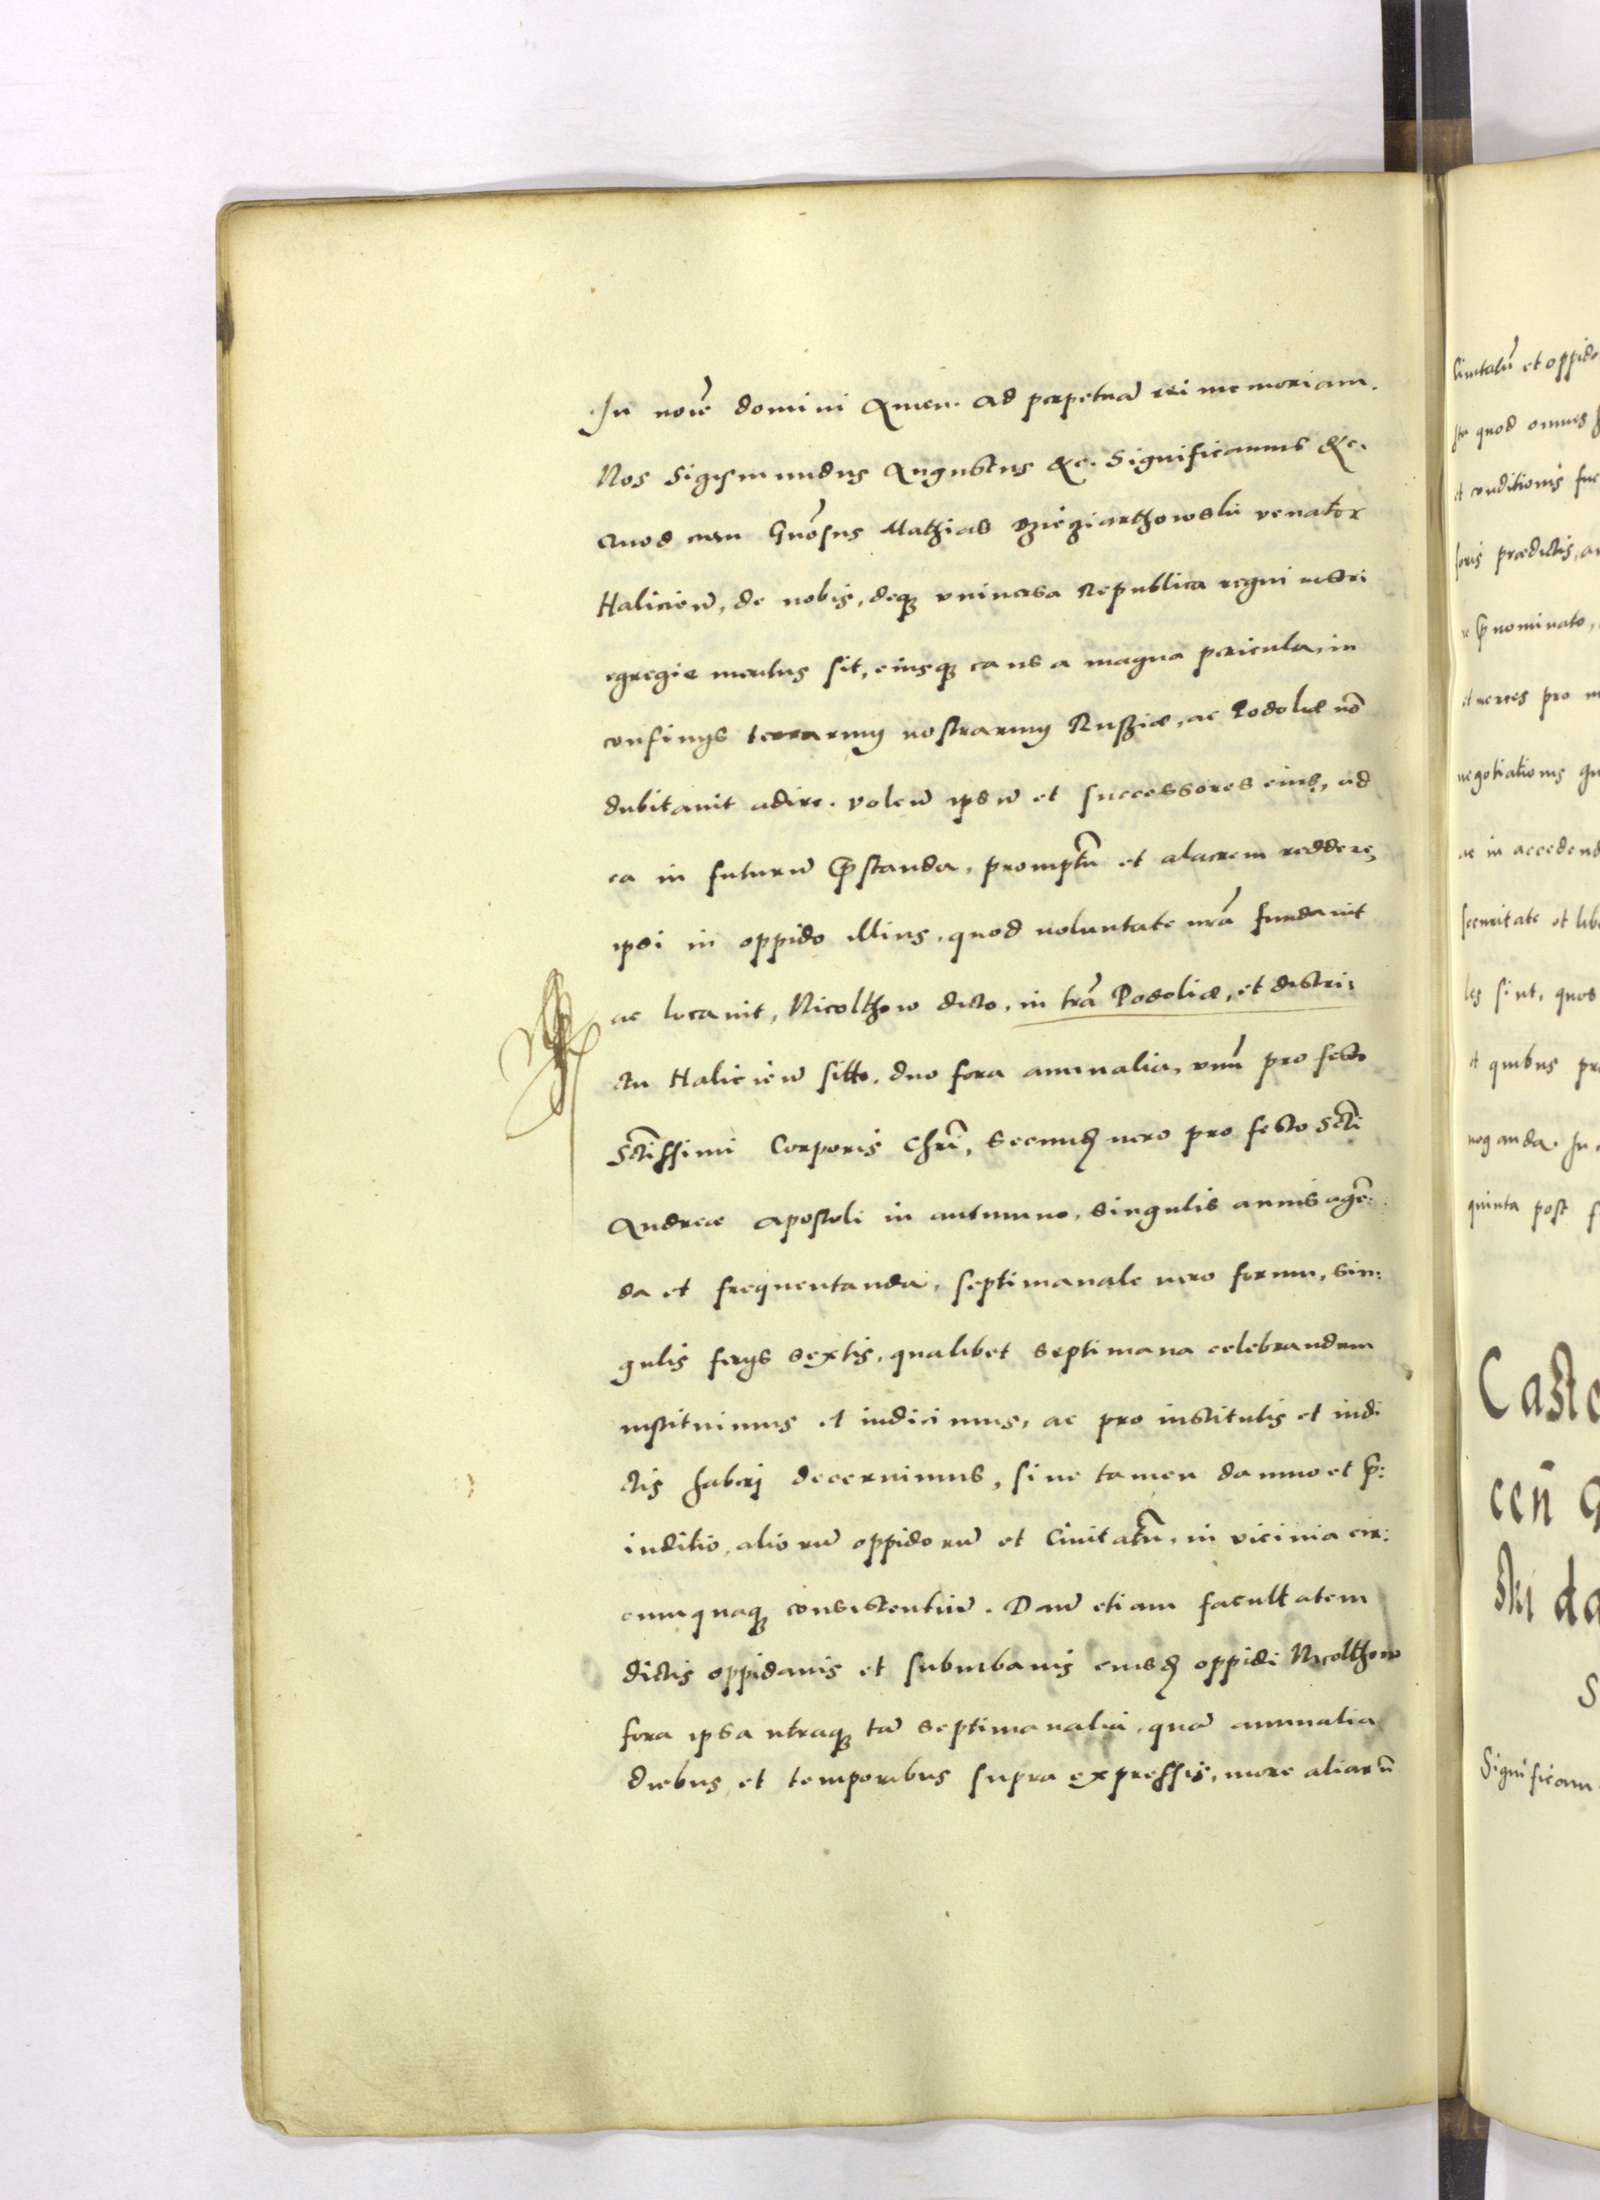 In noīe domini Amen. Ad perpetuā rei memoriam.
Nos Sigismundus Augustus &c. Significamus &c.
Quod cum Gnōsus Mathias venator
Halicień, de nobis, deq₃ vniuersa Republica regni nostri
egregie meritus sit, eiusq₃ causa magna pericula, in
confinijs terrarum nostrarum Russiæ, ac Podoliæ nō
dubitauit adire. Voleń ipsū et successores eius, ad
ea in futurū p̄standa, promptū et alacrem reddere,
ipsi in oppido illius, quod voluntate nrā fundauit
ac locauit, Nicolthow dicto, in trā Podoliæ, et distri:
ctu Halicień sitto. duo fora annualia, vnū pro festo
Sctīssimi Corporis Chrī, secundū vero pro festo Sctī
Andreæ Apostoli in autumno, singulis annis agēn:
da et frequentanda, septimanale vero forum, sin:
gulis ferijs sextis, qualibet septimana celebrandum
instituimus et indicimus, ac pro institutis et indi
ctis haberj decernimus, sine tamen damno et p̄:
iuditio, aliorū oppidorū et Ciuitatū, in vicinia cir:
cumquaq₃ consistentiū. Damꝰ etiam facultatem
dictis oppidanis et suburbanis eiusdē oppidi Nicolthow
fora ipsa utraq₃ tā septimanalia, quā annualia
diebus et temporibus supra expressis, more aliarū
Ciuitatū et oppido
Ita quod omnes
et conditionis
foris prædictis,
p̄nominato,
et merces pro
negotiationis
ac in accedend
securitate et lib
les sint, quos
et quibus
neganda. In
quinta post
Caste
ceń
ski da
S
Significam